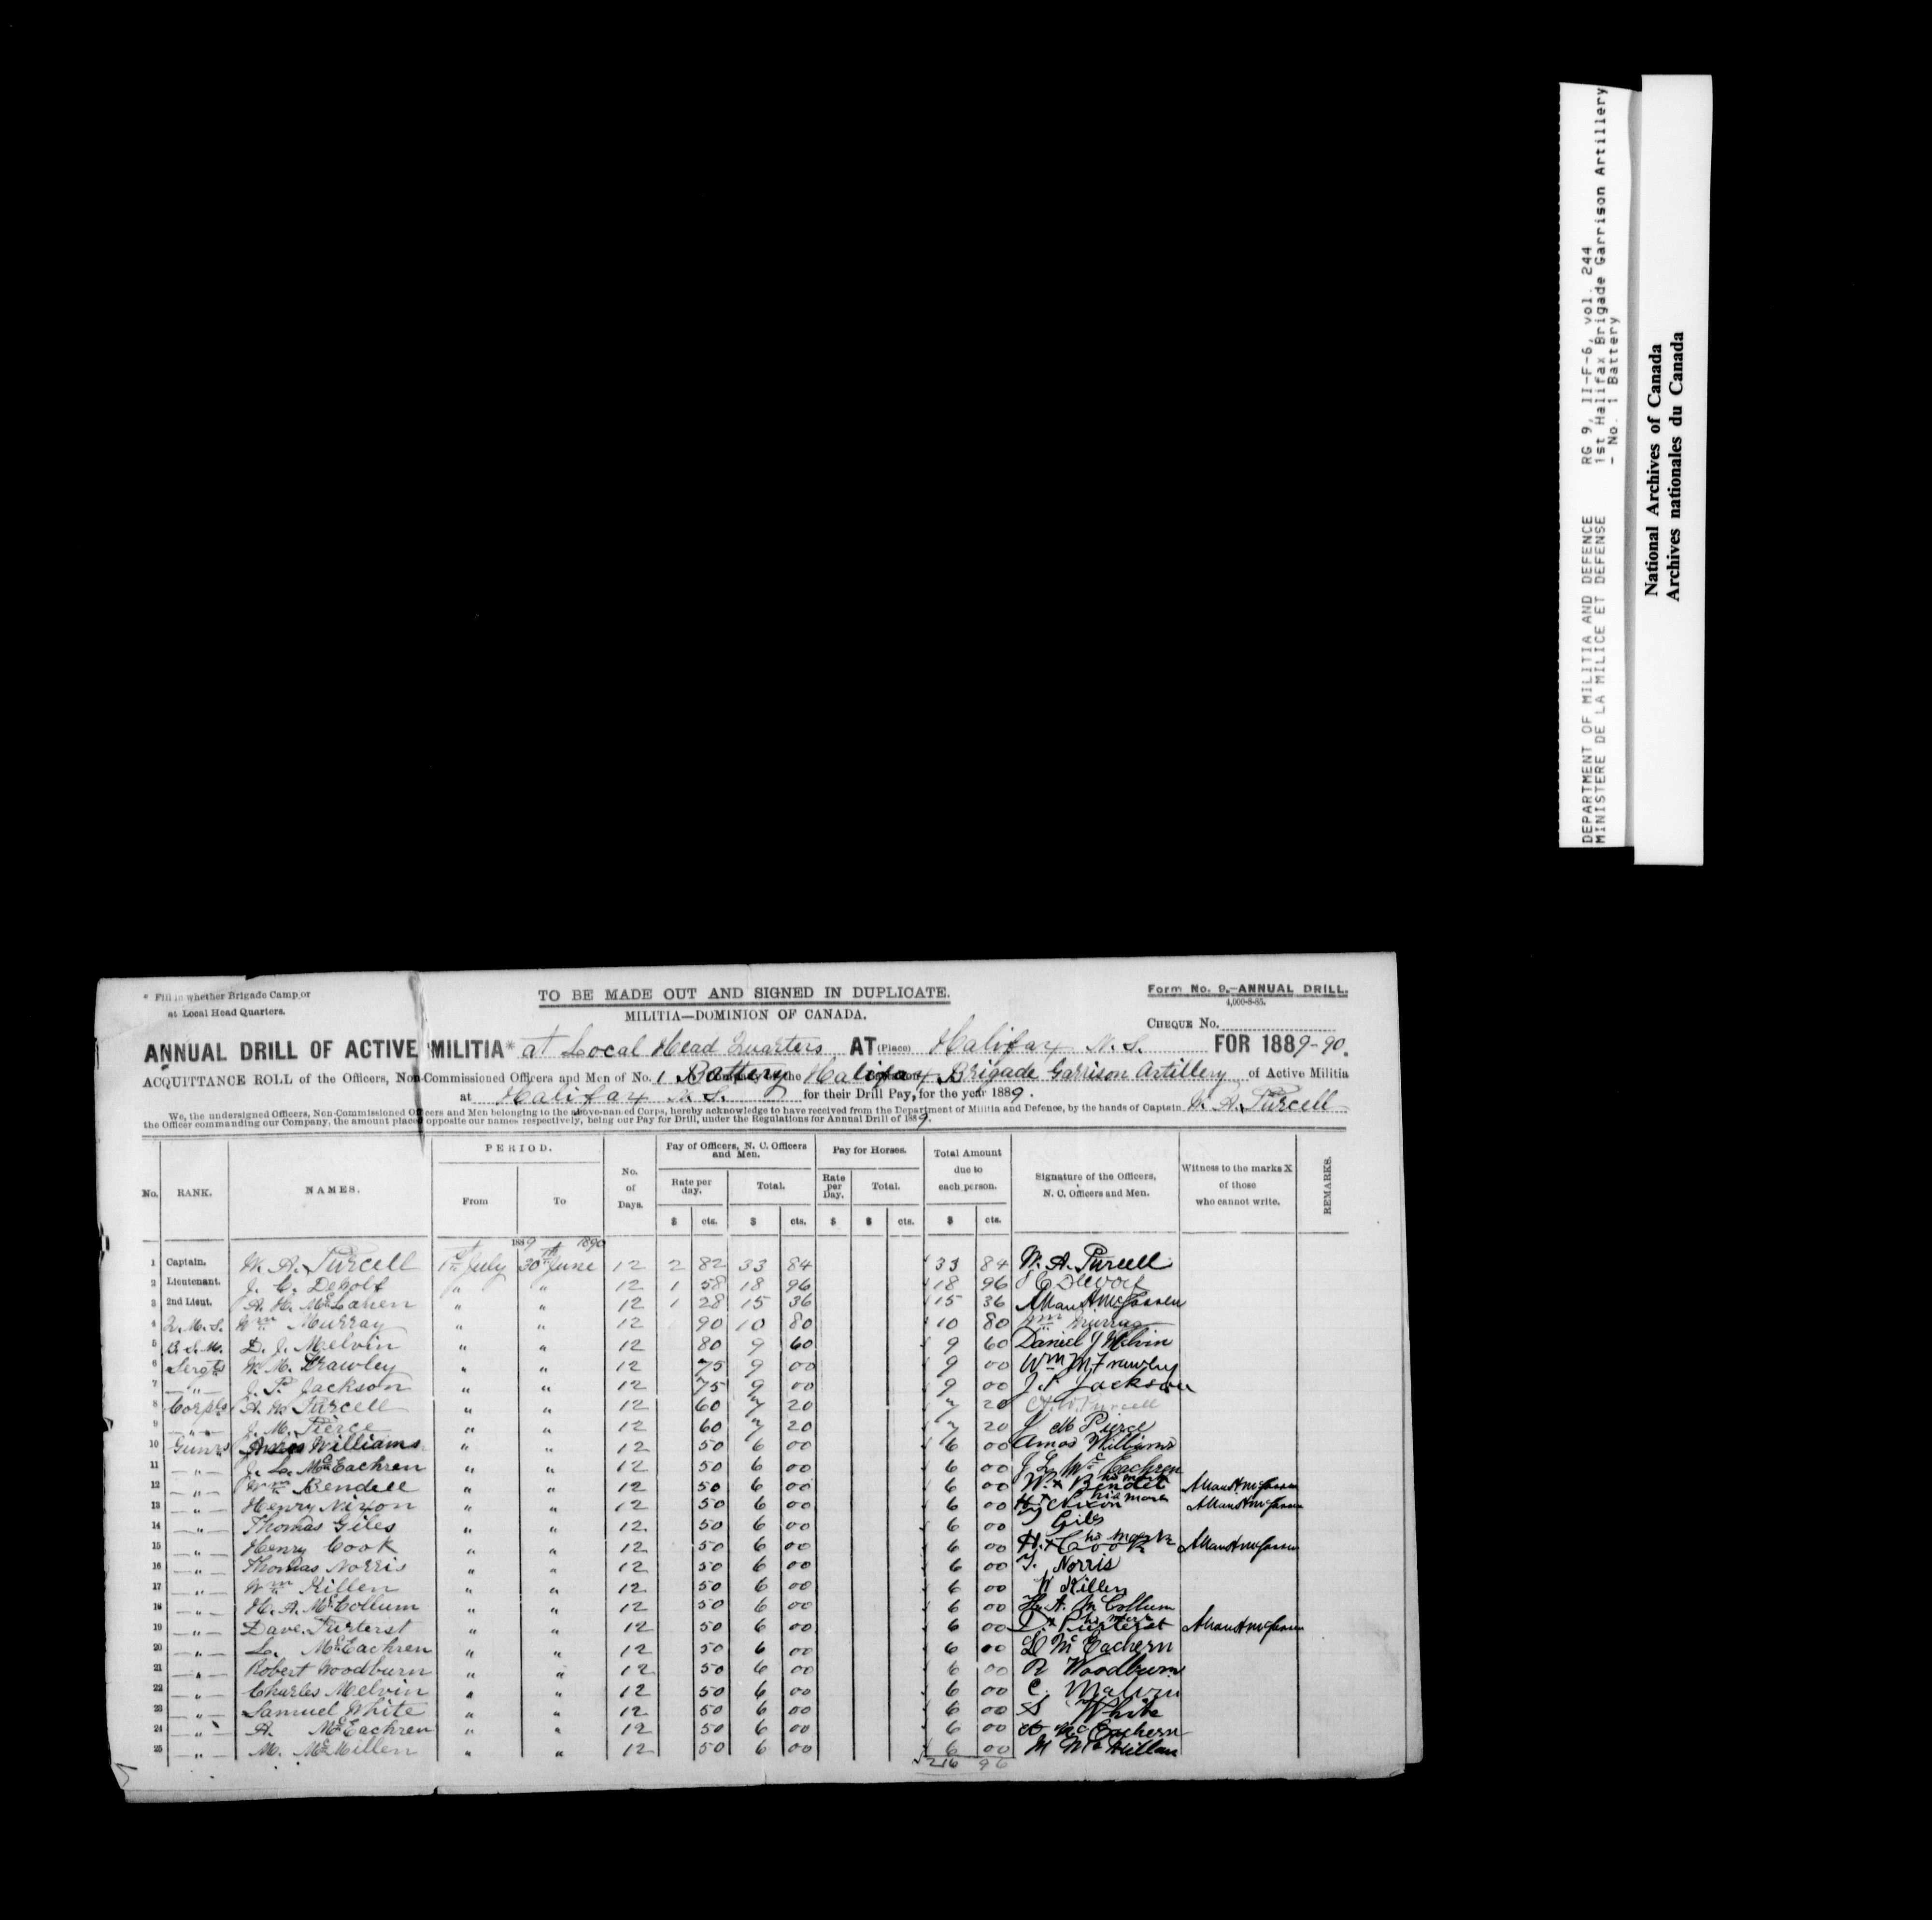 DEPARTMENT OF MILITIA AND DEFENCE RG 9, II-F-6, vol. 244
MINISTERE DE LA MILICE ET DEFENSE 1st Halifax Brigade Garrison Artillery
- No. 1 Battery
National Archives of Canada
Archives nationales du Canada
* Fill in whether Brigade Camp or
at Local Head Quarters.
TO BE MADE OUT AND SIGNED IN DUPLICATE.
Form No. 9.—ANNUAL DRILL.
4,000-8-85.
MILITIA—DOMINION OF CANADA.
CHEQUE No.
ANNUAL DRILL OF ACTIVE MILITIA* at Local Head Quarters AT (Place) Halifax N.S. FOR 1889-90.
ACQUITTANCE ROLL of the Officers, Non-Commissioned Officers and Men of No. 1 Battery the Halifax Brigade Garrison Artillery of Active Militia
at Halifax N.S. for their Drill Pay, for the year 1889.
We, the undersigned Officers, Non-Commissioned Officers and Men belonging to the above-named Corps, hereby acknowledge to have received from the Department of Militia and Defence, by the hands of Captain W. A. Purcell
the Officer commanding our Company, the amount placed opposite our names respectively, being our Pay for Drill, under the Regulations for Annual Drill of 1889.
No. RANK. NAMES. PERIOD. From To No. of Days. Pay of Officers, N. C. Officers and Men. Rate per day. $ cts. Total. $ cts. Pay for Horses. Rate per Day. $ Total. $ cts. Total Amount due to each person. $ cts. Signature of the Officers, N. C. Officers and Men. Witness to the marks X of those who cannot write. REMARKS.
1889 1890
1 Captain. W. A. Purcell 1st July 30th June 12 2 82 33 84 33 84 W. A. Purcell
2 Lieutenant. J. C. DeWolf " " 12 1 58 18 96 18 96 J C DeWolf
3 2nd Lieut. A. H. McLaren " " 12 1 28 15 36 15 36
4 Q.M.S. Wm Murray " " 12 90 10 80 10 80 Wm Murray
5 B.S.M. D. J. Melvin " " 12 80 9 60 9 60 Daniel J Melvin
6 Sergts W. M. Frawley " " 12 75 9 00 9 00 Wm M Frawley
7 " J. P. Jackson " " 12 75 9 00 9 00 J. P Jackson
8 Corpls A. W. Purcell " " 12 60 7 20 7 20 A. W. Purcell
9 " J. M. Pierce " " 12 60 7 20 7 20 J M Pierce
10 Gunrs Amos Williams " " 12 50 6 00 6 00 Amos Williams
11 " J. L. McEachren " " 12 50 6 00 6 00 J L McEachren
12 " Wm Bendell " " 12 50 6 00 6 00 W. x Bendel his mark
13 " Henry Nixon " " 12 50 6 00 6 00 H x Nixon his mark
14 " Thomas Giles " " 12 50 6 00 6 00 T Giles
15 " Henry Cook " " 12 50 6 00 6 00 H. x Cook his mark
16 " Thomas Norris " " 12 50 6 00 6 00 T. Norris
17 " Wm Killen " " 12 50 6 00 6 00 W Killen
18 " H. A. McCollum " " 12 50 6 00 6 00 H. A. McCollum
19 " Dave. " " 12 50 6 00 6 00 D. x his mark
20 " L. McEachren " " 12 50 6 00 6 00 L McEachern
21 " Robert Woodburn " " 12 50 6 00 6 00 R Woodburn
22 " Charles Melvin " " 12 50 6 00 6 00 C. Malvin
23 " Samuel White " " 12 50 6 00 6 00 S White
24 " A. McEachren " " 12 50 6 00 6 00 A McEachern
25 " M. McMillen " " 12 50 6 00 6 00 M McMillan
216 96